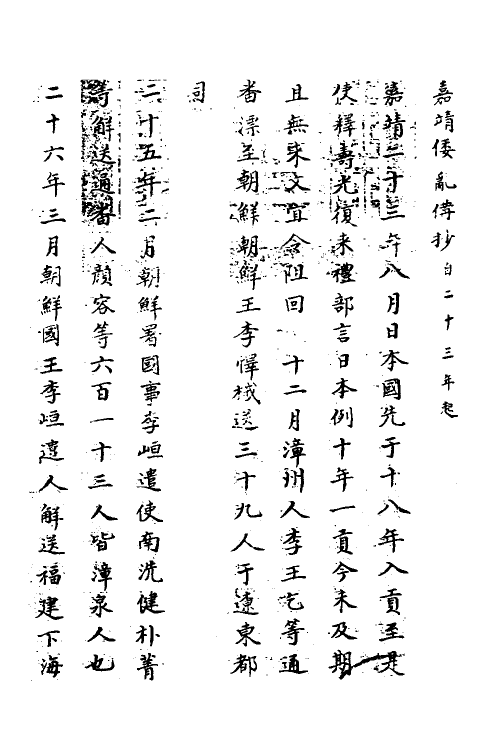 嘉靖倭亂備抄自二十三年起
嘉靖二十三年八月日本國先于十八年入貢至是
使釋壽光復来禮部言日本例十年一貢今未及期
且無来文宜令阻回 十二月漳州人李王乞等通
番漂至朝鮮朝鮮王李懌械送三十九人于遼東都
司
二十五年二月朝鮮署國事李峘遣使南洗健朴菁
等解送通番人顔容等六百一十三人皆漳泉人也
二十六年三月朝鮮國王李峘遣人解送福建下海